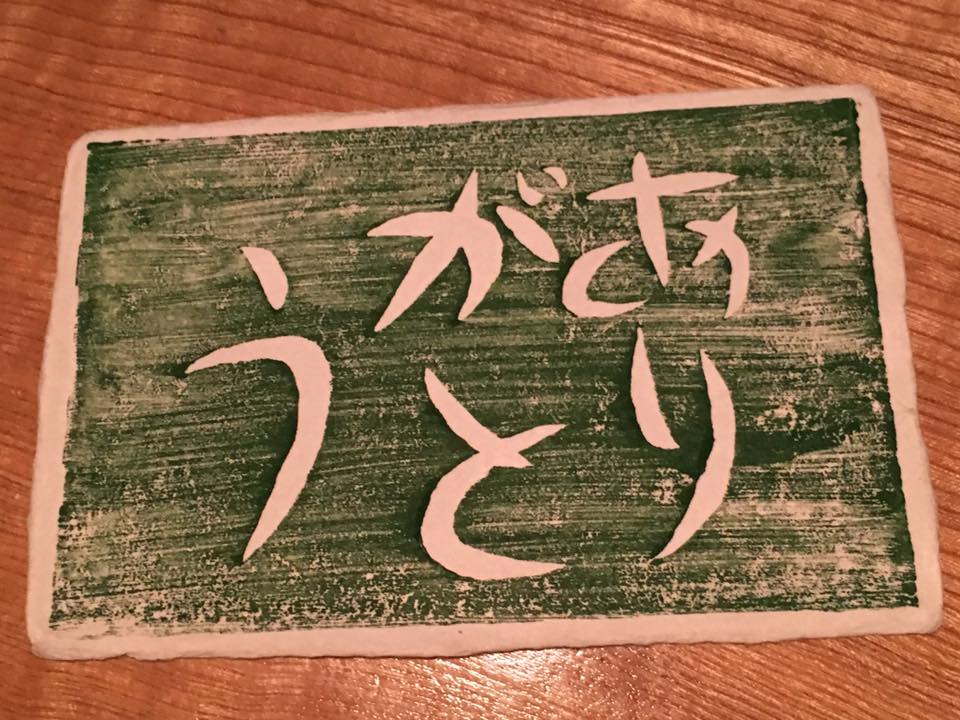 あり
がと
う